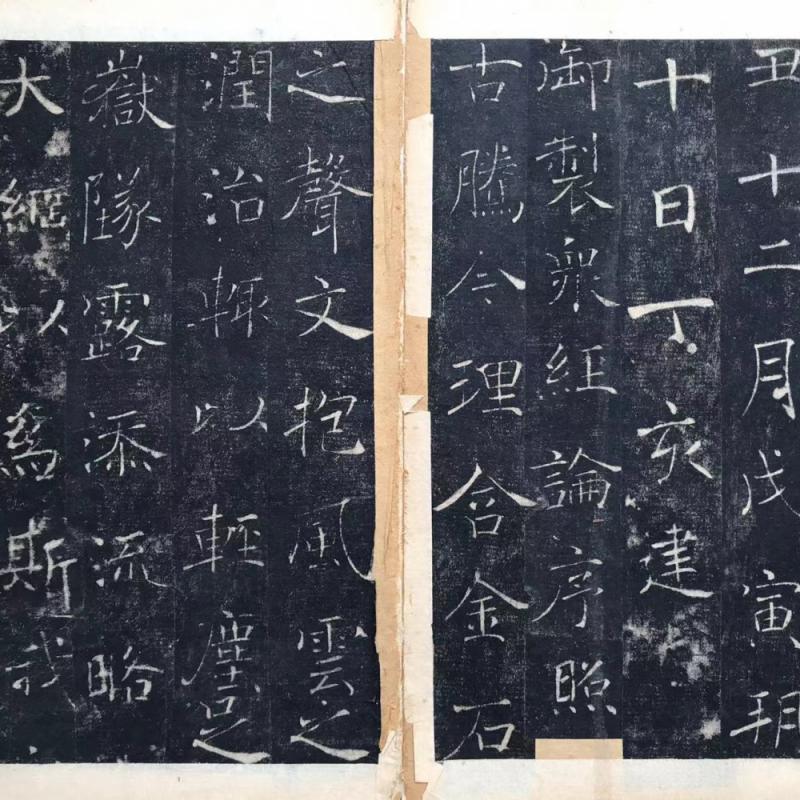 丑十二月戊寅朔
十日丁亥建
御製衆經論序照
古騰今理含金石
之聲文抱風雲之
潤治輒以輕塵足
嶽隊露添流略
大綱以爲斯